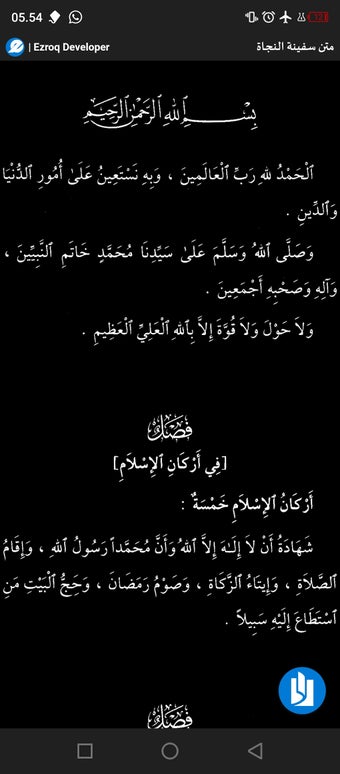 05.54
12
| Ezroq Developer
متن سفينة النجاة
بِسْمِ اللهِ الرَّحْمٰنِ الرَّحِيْمِ
اَلْحَمْدُ للهِ رَبِّ الْعَالَمِينَ ، وَبِهِ نَسْتَعِينُ عَلَىٰ أُمُورِ الدُّنْيَا
وَالدِّينِ .
وَصَلَّى اللهُ وَسَلَّمَ عَلَىٰ سَيِّدِنَا مُحَمَّدٍ خَاتَمِ النَّبِيِّينَ ،
وَآلِهِ وَصَحْبِهِ أَجْمَعِينَ .
وَلاَ حَوْلَ وَلاَ قُوَّةَ إِلاَّ بِاللهِ الْعَلِيِّ الْعَظِيمِ .
فَصْلٌ
[فِي أَرْكَانِ الإِسْلاَمِ]
أَرْكَانُ الإِسْلاَمِ خَمْسَةٌ :
شَهَادَةُ أَنْ لاَ إِلَـٰهَ إِلاَّ اللهُ وَأَنَّ مُحَمَّداً رَسُولُ اللهِ ، وَإِقَامُ
الصَّلاَةِ ، وَإِيتَاءُ الزَّكَاةِ ، وَصَوْمُ رَمَضَانَ ، وَحَجُّ الْبَيْتِ مَنِ
اسْتَطَاعَ إِلَيْهِ سَبِيلاً .
فَصْلٌ